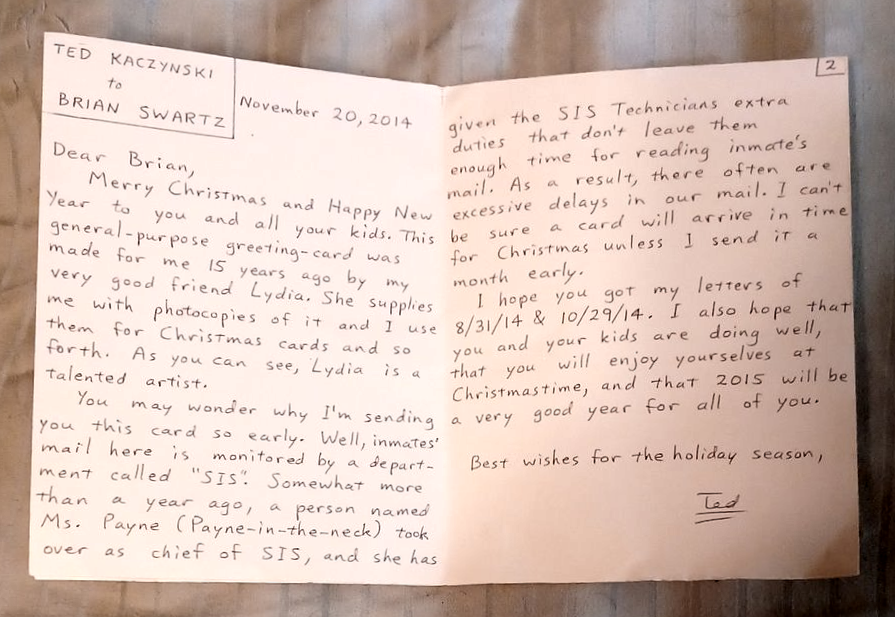 TED KACZYNSKI
to
BRIAN SWARTZ
November 20, 2014
Dear Brian,
Merry Christmas and Happy New
Year to you and all your kids. This
general-purpose greeting-card was
made for me 15 years ago by my
very good friend Lydia. She supplies
me with photocopies of it and I use
them for Christmas cards and so
forth. As you can see, Lydia is a
talented artist.
You may wonder why I'm sending
you this card so early. Well, inmates'
mail here is monitored by a depart-
ment called "SIS". Somewhat more
than a year ago, a person named
Ms. Payne (Payne-in-the-neck) took
over as chief of SIS, and she has
2
given the SIS Technicians extra
duties that don't leave them
enough time for reading inmate's
mail. As a result, there often are
excessive delays in our mail. I can't
be sure a card will arrive in time
for Christmas unless I send it a
month early.
I hope you got my letters of
8/31/14 & 10/29/14. I also hope that
you and your kids are doing well,
that you will enjoy yourselves at
Christmastime, and that 2015 will be
a very good year for all of you.
Best wishes for the holiday season,
Ted